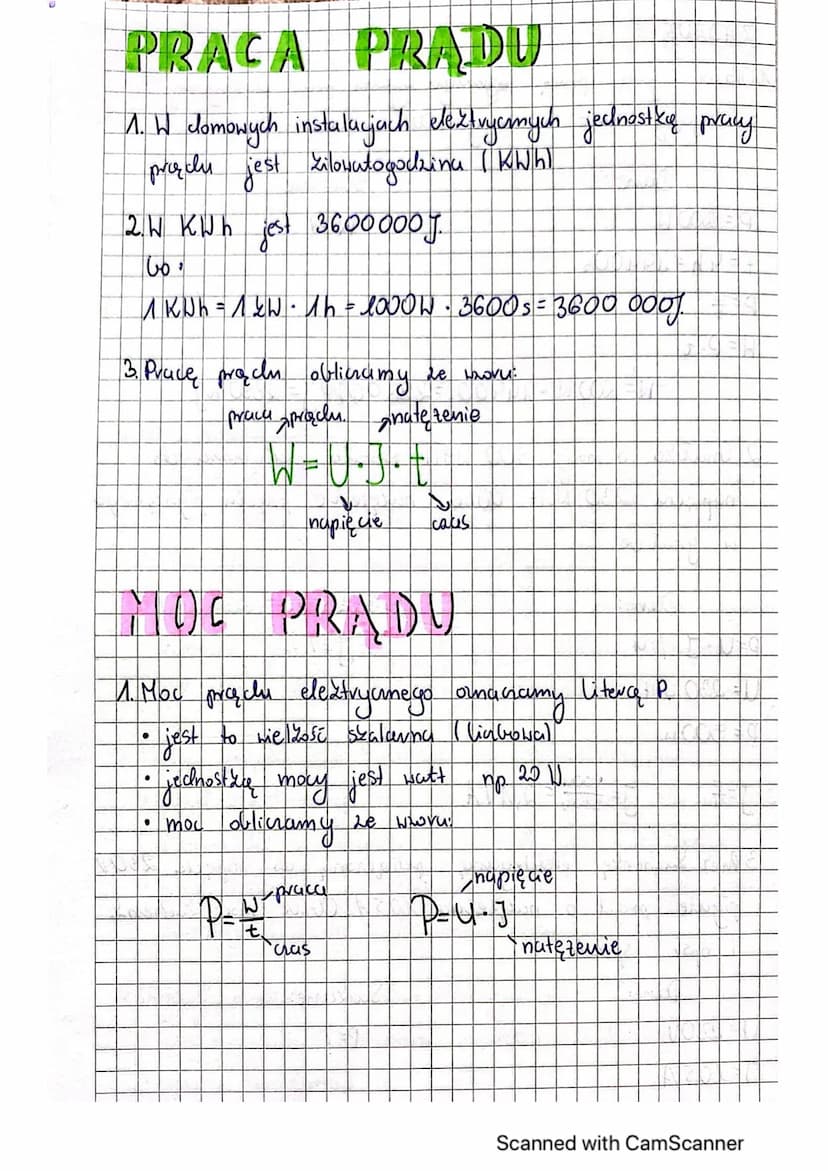 PRACA PRĄDU
1. W domowych instalacjach elektrycznych jednostką pracy
prądu jest kilowatogodzina (KWh)
2. W KWh jest 3600000J.
bo:
1 KWh = 1 kW · 1h = 1000W · 3600s = 3600 000J.
3. Pracę prądu obliczamy ze wzoru:
praca prądu. natężenie
W = U · J · t
napięcie czas
MOC PRĄDU
1. Moc prądu elektrycznego oznaczamy literą P
• jest to wielkość skalarna (liczbowa)
• jednostką mocy jest watt np. 20 W.
• moc obliczamy ze wzoru:
napięcie
praca
P = W/t P = U · J
czas natężenie
Scanned with CamScanner